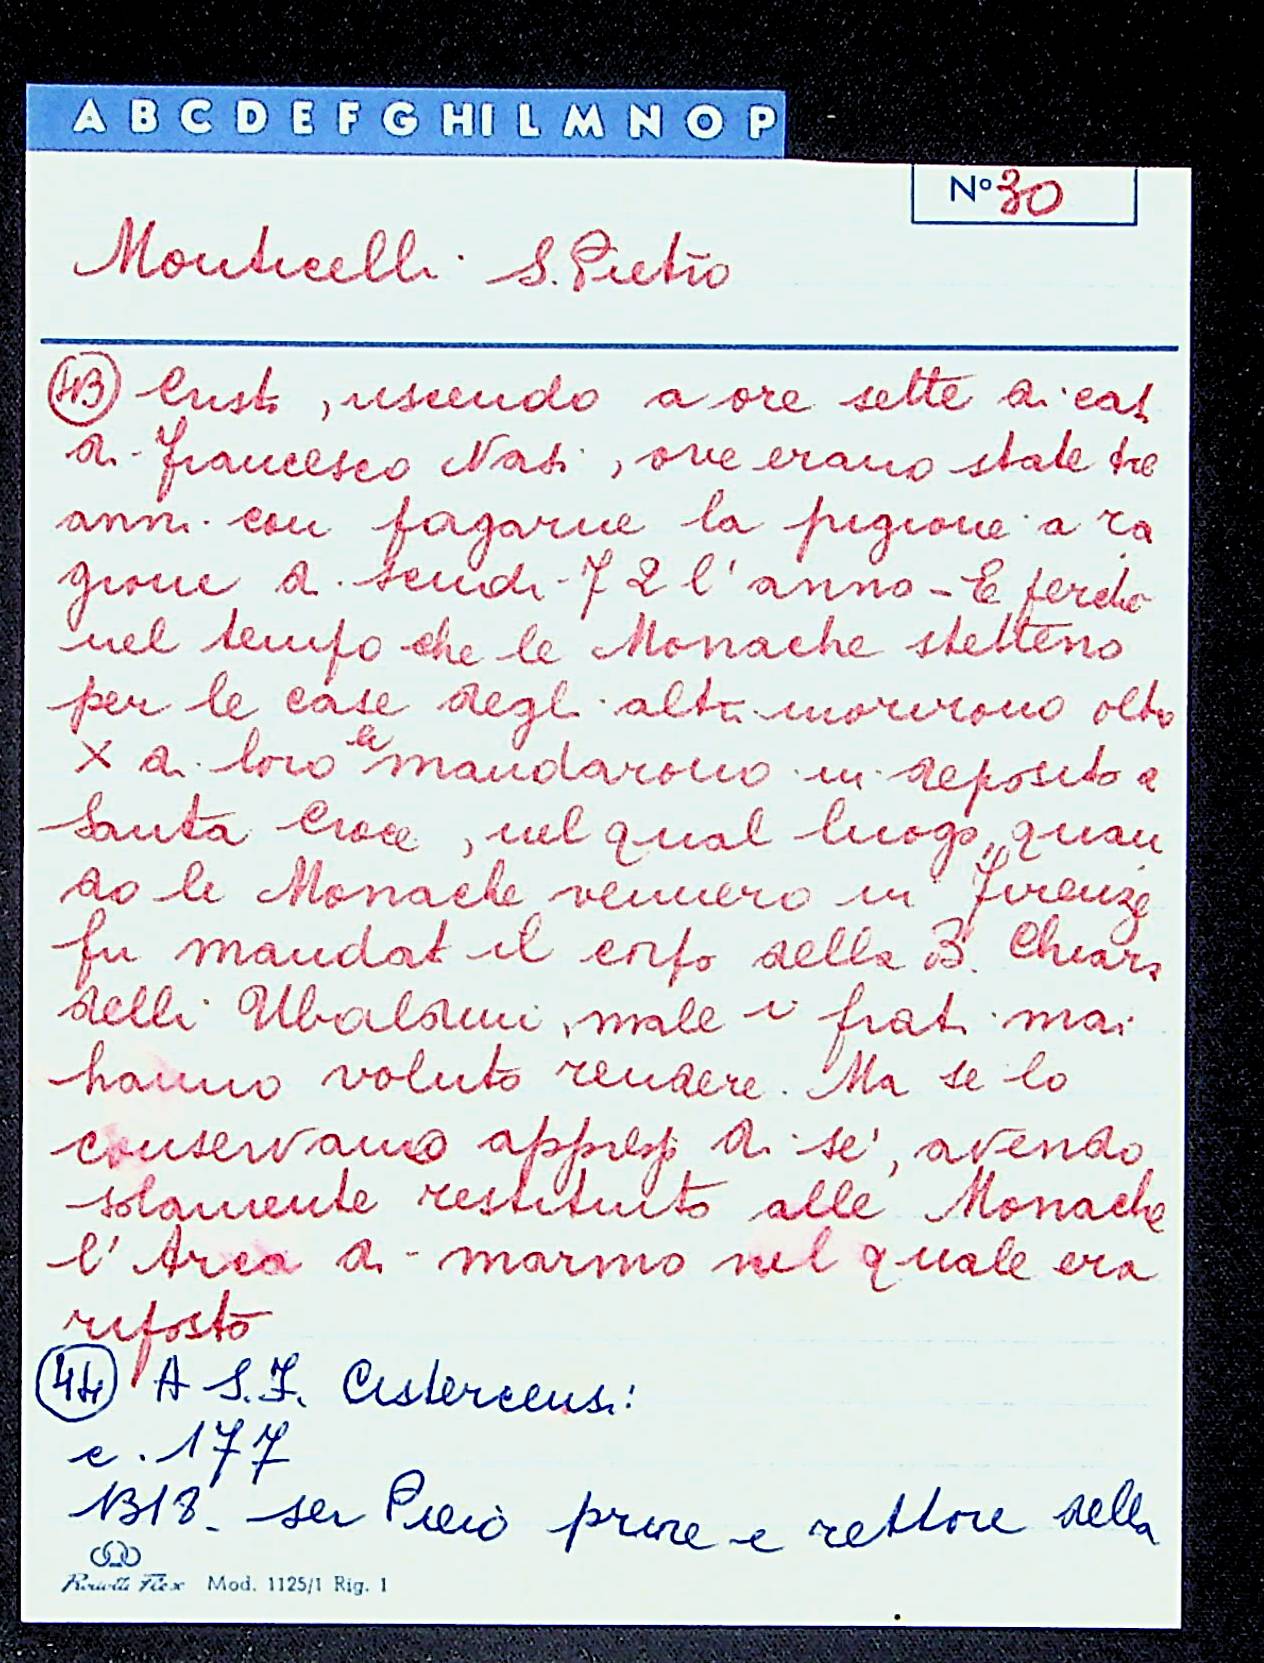 A B C D E F G H I L M N O P
N° 30
Monticelli. S. Pietro
43 Cristi, uscendo a ore sette di cas
di Francesco Nasi, ove erano state tre
anni con pagarne la pigione a ra
gione di scudi 72 l'anno - E perchè
nel tempo che le Monache stetteno
per le case degli altri morirono otto
X di loro le mandarono in deposito a
Santa Croce, nel qual luogo, quan
do le Monache vennero in Firenze
fu mandat il corpo della B. Chiara
delli Ubaldini, male i frati mai
hanno voluto rendere. Ma se lo
conservano appresso di sé, avendo
solamente restituito alle Monache
l'Arca di marmo nel quale era
riposto
44 A S.F. Cistercensi:
c. 177
1318. ser Piero priore e rettore della
Mod. 1125/1 Rig. 1